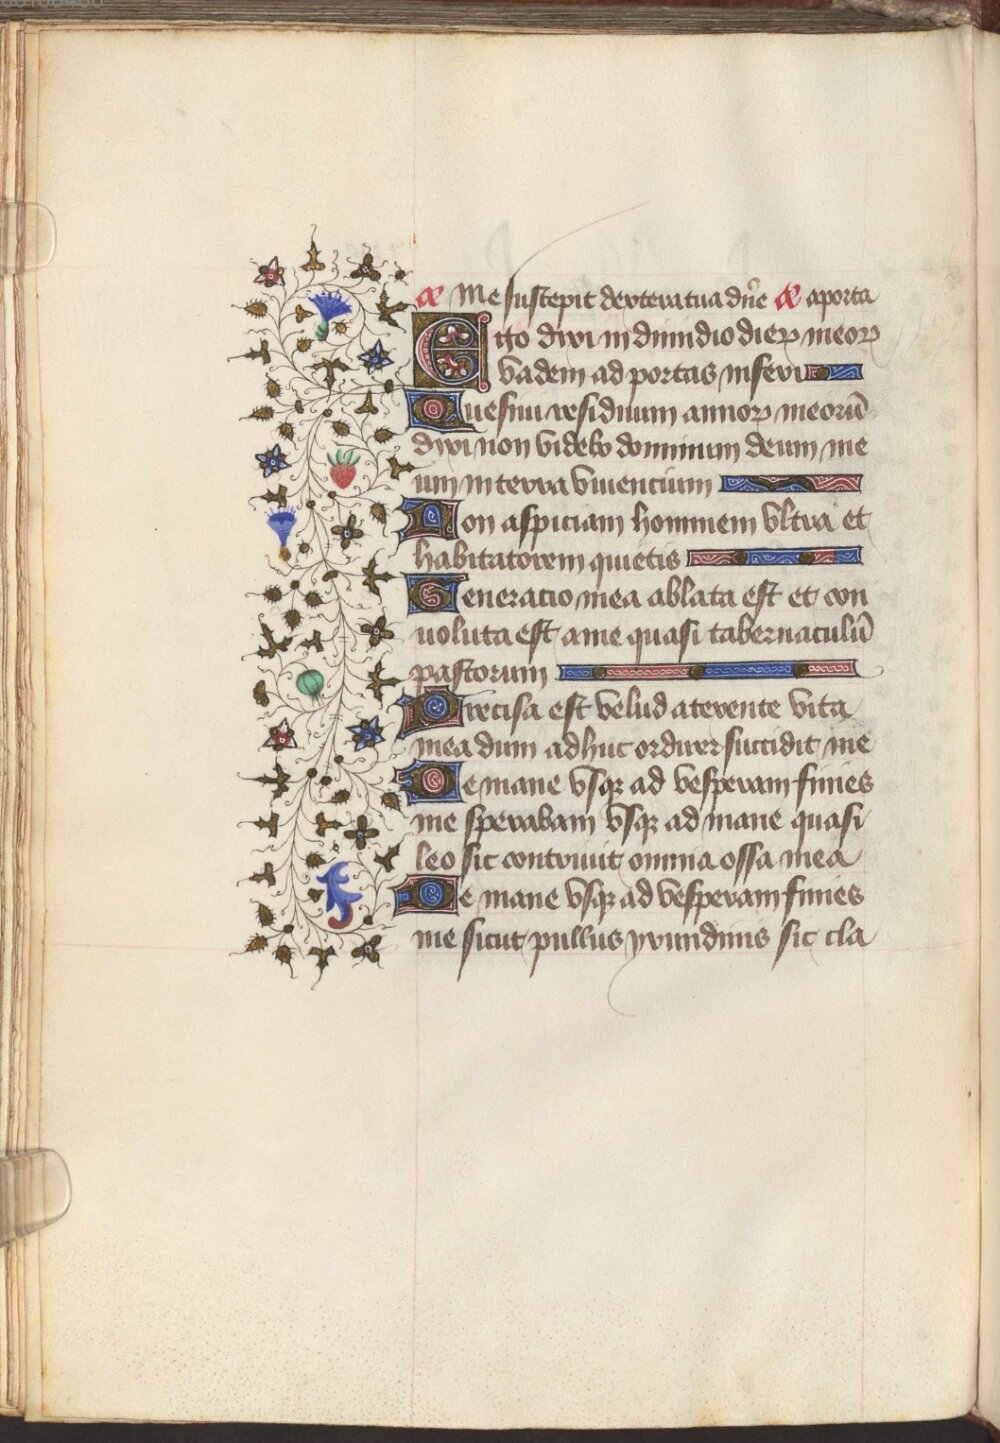 a̅ Me suscepit dextera tua dn̄e a̅ aporta
Ego dixi in dimidio dieꝝ meoꝝ
vadem ad portas inferi
Quesiui residuum annoꝝ meorū
dixi non videbo dominum deum me
um in terra viuencium
Non aspiciam hominem vltra et
habitatorem quietis
Generacio mea ablata est et con
uoluta est a me quasi tabernaculū
pastorum
Precisa est velud a texente vita
mea dum adhuc ordirer succidit me
De mane vsqꝫ ad vesperam finies
me sperabam vsqꝫ ad mane quasi
leo sic contriuit omnia ossa mea
De mane vsqꝫ ad vesperam finies
me sicut pullus yrundinis sic cla